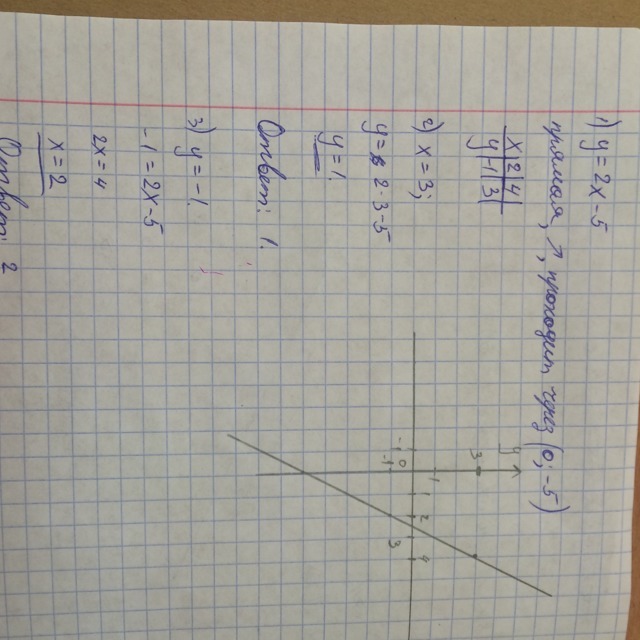 1) y = 2x - 5
прямая, ↗, проходит через (0; -5)
x | 2 | 4
y | -1 | 3
2) x = 3;
y = 2·3-5
y = 1.
Ответ: 1.
3) y = -1.
-1 = 2x-5
2x = 4
x = 2
Ответ: 2
y
3
1
-1 0 1 2 3 4
-1